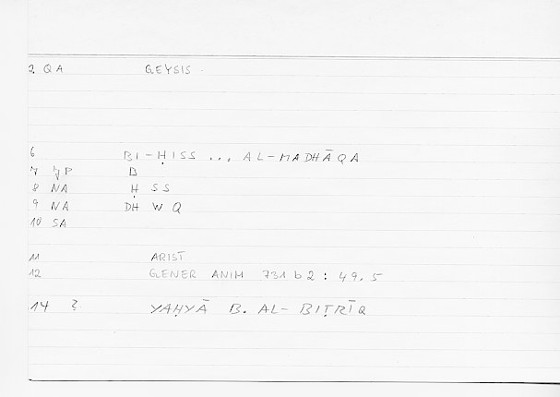 2 QA GEYSIS
6 BI-ḤISS ... AL-MADHĀQA
7 B
8 NA Ḥ S S
9 NA DH W Q
10 SA
11 ARIST
12 GENER ANIM 731 b 2 : 49.5
14 YAḤYĀ B. AL-BIṬRĪQ